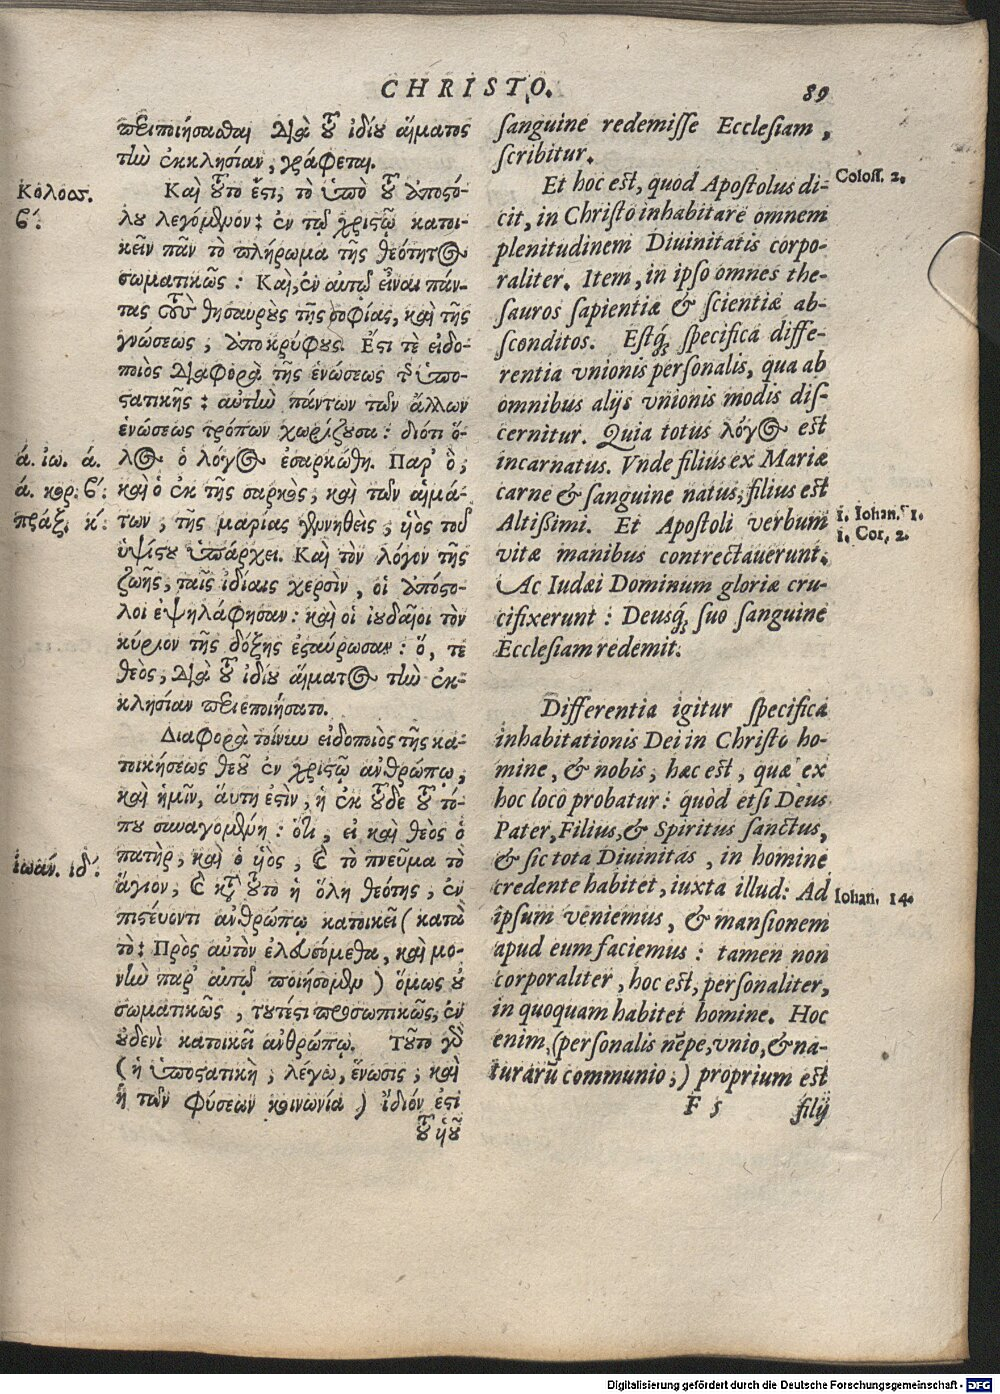 CHRISTO.
89
περιποιήσασθαι διὰ τοῦ ἰδίου αἵματος
τὴν ἐκκλησίαν, γράφεται.
Κολοσ.
β΄.
Καὶ τοῦτο ἔστι, τὸ ὑπὸ τοῦ ἀποστό-
λου λεγόμενον: ἐν τῷ χριστῷ κατοι-
κεῖν πᾶν τὸ πλήρωμα τῆς θεότητος
σωματικῶς: Καὶ, ἐν αὐτῷ εἶναι πάν-
τας τοὺς θησαυροὺς τῆς σοφίας, καὶ τῆς
γνώσεως, ἀποκρύφους. Ἔστι τὲ εἰδο-
ποιὸς διαφορὰ τῆς ἑνώσεως τῆς ὑπο-
στατικῆς: αὐτὴν πάντων τῶν ἄλλων
ἑνώσεως τρόπων χωρίζουσα: διότι ὅ-
ά. ἰω. ά.
λος ὁ λόγος ἐσαρκώθη. Παρ' ὅ,
ά. κορ. β΄:
καὶ ὁ ἐκ τῆς σαρκὸς, καὶ τῶν αἱμά-
πράξ. κ΄:
των, τῆς μαρίας γεννηθεὶς, υἱὸς τοῦ
ὑψίστου ὑπάρχει. Καὶ τὸν λόγον τῆς
ζωῆς, ταῖς ἰδίαις χερσὶν, οἱ ἀπόστο-
λοι ἐψηλάφησαν: καὶ οἱ ἰουδαῖοι τὸν
κύριον τῆς δόξης ἐσταύρωσαν: ὅ, τε
θεὸς, διὰ τοῦ ἰδίου αἵματος τὴν ἐκ-
κλησίαν περιεποιήσατο.
Διαφορὰ τοίνυν εἰδοποιὸς τῆς κα-
τοικήσεως θεοῦ ἐν χριστῷ ἀνθρώπῳ,
καὶ ἡμῖν, ἅυτη ἐστὶν, ἡ ἐκ τοῦδε τοῦ τό-
που συναγομένη: ὅτι, εἰ καὶ θεὸς ὁ
ἰωάν. ιδ΄:
πατὴρ, καὶ ὁ υἱὸς, καὶ τὸ πνεῦμα τὸ
ἅγιον, καὶ κατὰ τοῦτο ἡ ὅλη θεότης, ἐν
πιστέυοντι ἀνθρώπῳ κατοικεῖ (κατὰ
τὸ: Πρὸς αὐτὸν ἐλευσόμεθα, καὶ μο-
νὴν παρ' αὐτῷ ποιήσομεν) ὅμως οὐ
σωματικῶς, τουτέστι προσωπικῶς, ἐν
οὐδενὶ κατοικεῖ ἀνθρώπῳ. Τοῦτο γὰρ
(ἡ ὑποστατικὴ, λέγω, ἕνωσις, καὶ
ἡ τῶν φύσεων κοινωνία) ἴδιόν ἐστι
τοῦ υἱοῦ
sanguine redemisse Ecclesiam,
scribitur.
Et hoc est, quod Apostolus di-
Coloss. 2.
cit, in Christo inhabitare omnem
plenitudinem Diuinitatis corpo-
raliter. Item, in ipso omnes the-
sauros sapientiæ & scientiæ ab-
sconditos. Estq́; specifica diffe-
rentia vnionis personalis, qua ab
omnibus alijs vnionis modis dis-
cernitur. Quia totus λόγος est
incarnatus. Vnde filius ex Mariæ
carne & sanguine natus, filius est
Altißimi. Et Apostoli verbum
1. Iohan. 1.
1. Cor. 2.
vitæ manibus contrectauerunt.
Ac Iudæi Dominum gloriæ cru-
cifixerunt: Deusq́; suo sanguine
Ecclesiam redemit.
Differentia igitur specifica
inhabitationis Dei in Christo ho-
mine, & nobis, hæc est, quæ ex
hoc loco probatur: quòd etsi Deus
Pater, Filius, & Spiritus sanctus,
& sic tota Diuinitas, in homine
credente habitet, iuxta illud: Ad
Iohan. 14.
ipsum veniemus, & mansionem
apud eum faciemus: tamen non
corporaliter, hoc est, personaliter,
in quoquam habitet homine. Hoc
enim, (personalis nẽpe, vnio, & na-
turarũ communio,) proprium est
F 5
filij
Digitalisierung gefördert durch die Deutsche Forschungsgemeinschaft - DFG